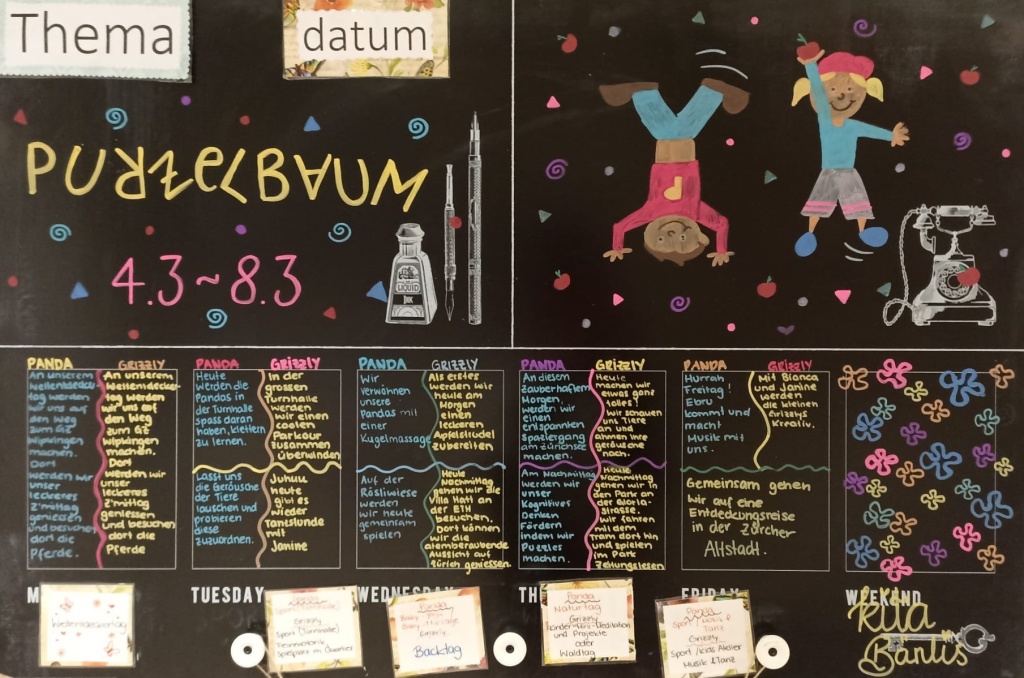 Thema
datum
PURZELBAUM
4.3 ~ 8.3
LIQUID
INK
PANDA
An unserem
Wellentdeck-
tag werden
wir uns auf
den Weg
zum GZ
Wipkingen
machen.
Dort
werden wir
unser
leckeres
Z'mittag
geniessen
und besuchen
dort die
Pferde.
GRIZZLY
An unserem
Weltentdecker-
tag werden
wir uns auf
den Weg
zum GZ
Wipkingen
machen.
Dort
werden wir
unser
leckeres
Z'mittag
geniessen
und besuchen
dort die
Pferde
PANDA
Heute
werden die
Pandas in
der Turnhalle
spass daran
haben, klettern
zu lernen.
GRIZZLY
In der
grossen
Turnhalle
werden
wir einen
coolen
Parkour
zusammen
überwinden
Lasst uns
die Geräusche
der Tiere
lauschen und
probieren
diese
zuzuordnen.
Juhuu
heute
gibt es
wieder
Tanzstunde
mit
Janine
PANDA
Wir
verwöhnen
unsere
Pandas mit
einer
Kugelmassage
GRIZZLY
Als erstes
werden wir
heute am
Morgen
einen
leckeren
Apfelstrudel
zubereiten
Auf der
Rösliwiese
werden
wir heute
gemeinsam
spielen
Heute
Nachmittag
gehen wir die
Villa Hatt an
der ETH
besuchen.
Dort können
wir die
atemberaubende
Aussicht auf
Zürich geniessen.
PANDA
An diesem
zauberhaften
Morgen
werden wir
einen
entspannten
Spaziergang
am Zürichsee
machen.
GRIZZLY
Heute
machen wir
etwas ganz
tolles!
Wir schauen
uns Tiere
an und
ahmen ihre
geräusche
nach.
Am Nachmittag
werden wir
unser
Kognitives
Denken
Fördern
indem wir
Puzzles
machen.
Heute
Nachmittag
gehen wir in
den Park an
der
strasse.
Wir fahren
mit dem
Tram dort hin
und spielen
im Park
Zeitungslesen
PANDA
Hurrah
Freitag!
Ebru
kommt und
macht
Musik mit
uns.
GRIZZLY
Mit Bianca
und Janine
werden
die kleinen
Grizzlys
Kreativ.
Gemeinsam gehen
wir auf eine
Entdeckungsreise
in der Zürcher
Altstadt.
TUESDAY
WEDNESDAY
FRIDAY
WEEKEND
Weltentdeckertag
Panda
Sport (Turnhalle)
Grizzly
Sport (Turnhalle)
Spielplatz im Quartier
Panda
Grizzly
Backtag
Panda
Naturtag
Grizzly
Kinder-Yoga-Meditation
und Projekte
oder
Waldtag
Panda
Sport / Musik &
Tanz
Grizzly
Sport / Kids Atelier
Musik & Tanz
Kita
Bärlis